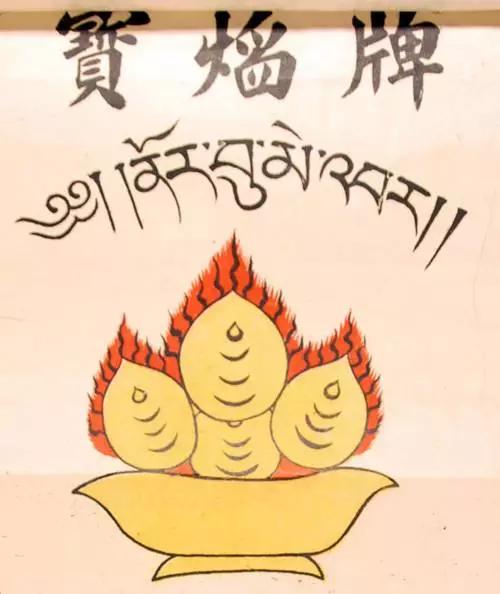 寶熖牌
༄། །ནོར་བུ་མེ་འབར། །